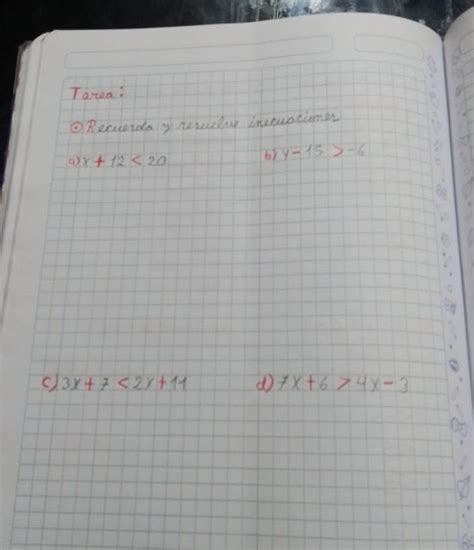 Tarea:
⊙ Recuerda y resuelve inecuaciones
a) x + 12 < 20
b) y - 15 > -6
c) 3x + 7 < 2x + 11
d) 7x + 6 > 4x - 3